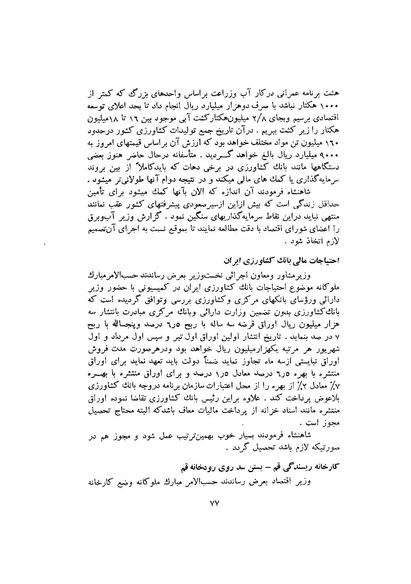 هشت برنامه عمرانی درکار آب وزراعت براساس واحدهای بزرگ که کمتر از
۱۰۰۰ هکتار نباشد با صرف دوهزار میلیارد ریال انجام داد تا بحد اعلای توسعه
اقتصادی برسیم وبجای ۲/۸ میلیون‌هکتارکشت آبی موجود بین ۱۶ تا ۱۸میلیون
هکتار را زیر کشت ببریم . درآن تاریخ جمع تولیدات کشاورزی کشور درحدود
۱۶۰ میلیون تن مواد مختلف خواهد بود که ارزش آن براساس قیمتهای امروز به
۹۰۰۰ میلیارد ریال بالغ خواهد گــردید . متأسفانه درحال حاضر هنوز بعضی
دستگاهها مانند بانک کشاورزی در برخی دهات که بایدکاملاً از بین بروند
سرمایه‌گذاری یا کمك های مالی میکند و در نتیجه دوام آنها طولانی‌تر میشود .
شاهنشاه فرمودند آن اندازه که الان بآنها کمك میشود برای تأمین
حداقل زندگی است که بیش ازاین ازسیرصعودی پیشرفتهای کشور عقب نمانند
منتهی نباید دراین نقاط سرمایه‌گذاریهای سنگین نمود . گزارش وزیر آب‌وبرق
را اعضای شورای اقتصاد با دقت مطالعه نمایند تا بموقع نسبت به اجرای آن‌تصمیم
لازم اتخاذ شود .
احتیاجات مالی بانك کشاورزی ایران
وزیرمشاور ومعاون اجرائی نخست‌وزیر بعرض رساندند حسب‌الامرمبارك
ملوکانه موضوع احتیاجات بانك کشاورزی ایران در کمیسیونی با حضور وزیر
دارائی ورؤسای بانکهای مرکزی وکشاورزی بررسی وتوافق گردیده است که
بانك‌کشاورزی بدون تضمین وزارت دارائی وبانک مرکزی مبادرت بانتشار سه
هزار میلیون ریال اوراق قرضه سه ساله با ربح ۶٫۵ درصد وپنجساله با ربح
۷ در صد بنماید . تاریخ انتشار اولین اوراق اول تیر و سپس اول مرداد و اول
شهریور هر مرتبه یکهزارمیلیون ریال خواهد بود ودرهرصورت مدت فروش
اوراق نبایستی ازسه ماه تجاوز نماید ضمناً دولت باید تعهد نماید برای اوراق
منتشره با بهره ۶٫۵ درصد معادل ۱٫۵ درصد و برای اوراق منتشره با بهــره
۷٪ معادل ۲٪ از بهره را از محل اعتبارات سازمان برنامه دروجه بانك کشاورزی
بلاعوض پرداخت کند . علاوه براین رئیس بانك کشاورزی تقاضا نموده اوراق
منتشره مانند اسناد خزانه از پرداخت مالیات معاف باشدکه البته محتاج تحصیل
مجوز است .
شاهنشاه فرمودند بسیار خوب بهمین‌ترتیب عمل شود و مجوز هم در
صورتیکه لازم باشد تحصیل گردد .
کارخانه ریسندگی قم – بستن سد روی رودخانه قم
وزیر اقتصاد بعرض رساندند حسب‌الامر مبارك ملوکانه وضع کارخانه
۷۷